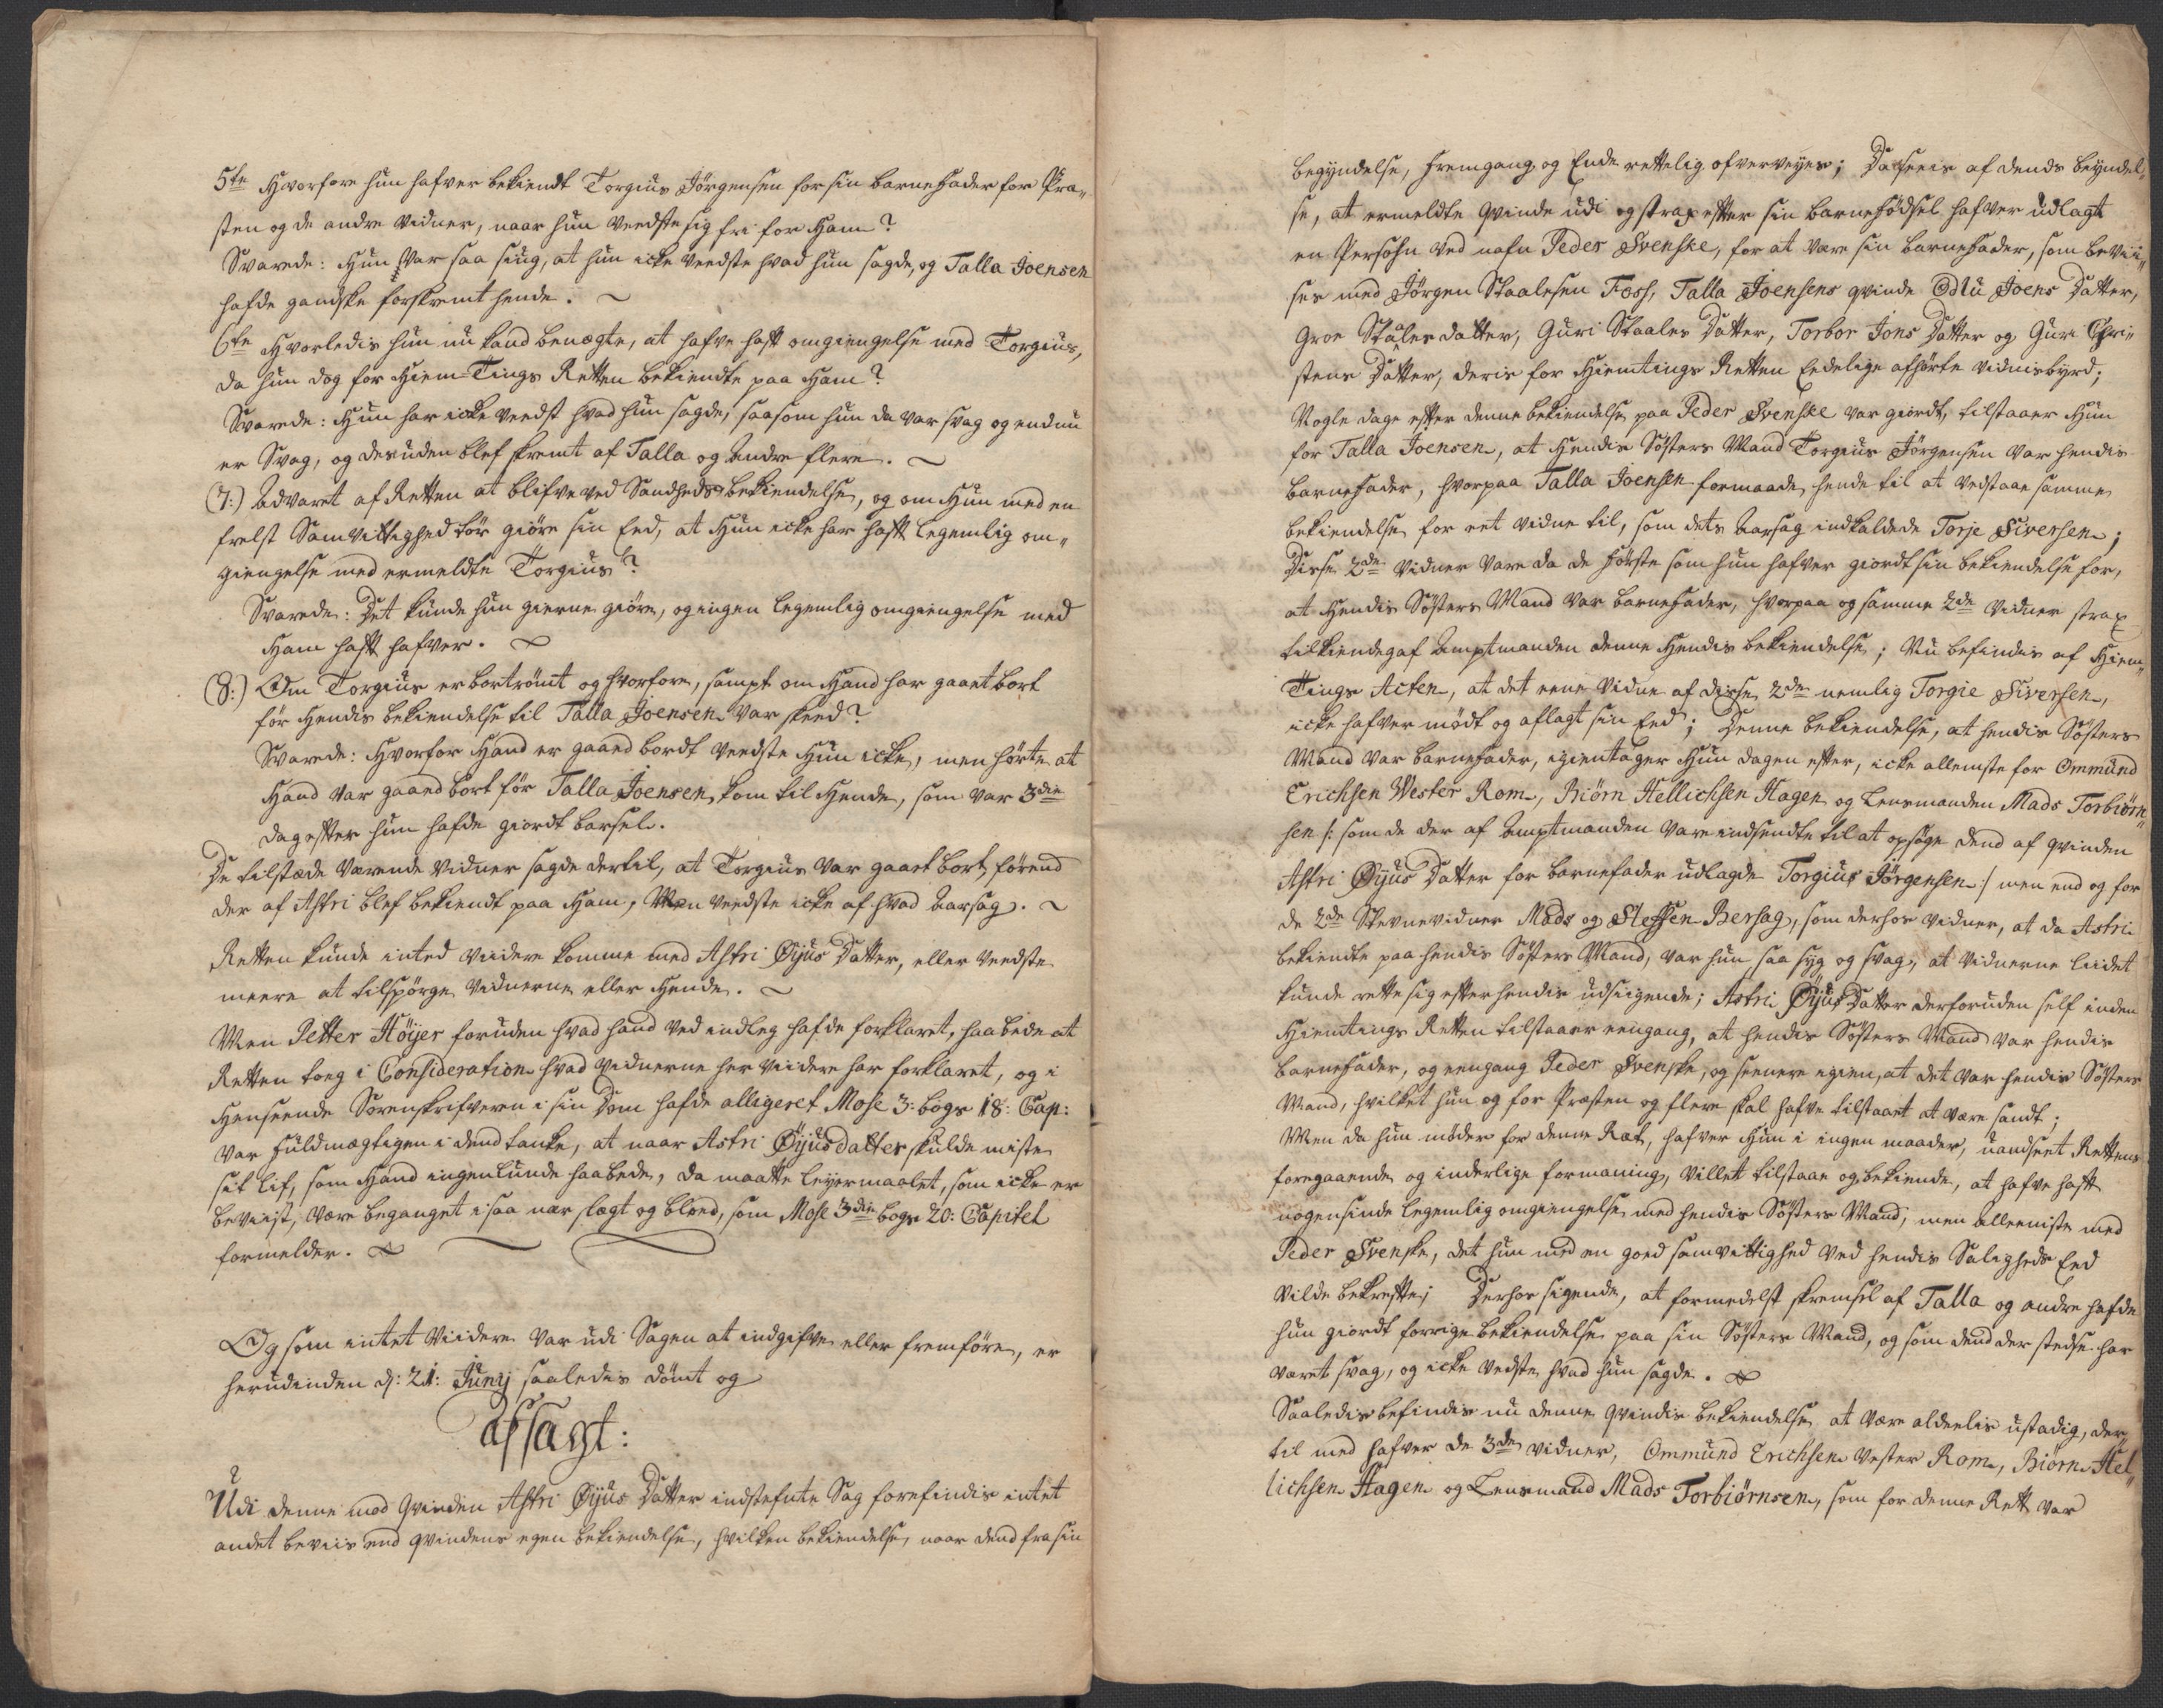 5te Hvorfore hun hafver bekiendt Torgius Jörgensen for sin barnefader for Præ„
sten og de andre vidner, naar hun veedste sig fri for Ham?
Svarede: Hun var saa siug, at hun icke veedste hvad hun sagde, og Talla Joensen
hafde gandske forskremt hende. ~
6te Hvorledis hun nu kand benægte, at hafve hafft omgiengelse med Torgius,
da hun dog for Hiem=Tings Retten bekiendte paa Ham?
Svarede: Hun har icke veedst hvad hun sagde, saasom hun da var svag og endnu
er Svag, og desuden blef skremt af Talla og andre flere. ~
(7:) Advaret af Retten at blifve ved Sandheds bekiendelse, og om Hun med en
frelst Samvittighed tör giöre sin Eed, at Hun icke har hafft legemlig om„
giengelse med ermeldte Torgius?
Svarede: Det kunde hun gierne giöre, og ingen legemlig omgiengelse med
Ham hafft hafver. ~
(8:) Om Torgius er bortrömt og hvorfore, sampt om Hand har gaaet bort
för Hendis bekiendelse til Talla Joensen var skeed?
Svarede: Hvorfor Hand er gaaed bordt veedste Hun icke, men hörte at
Hand var gaaed bort för Talla Joensen kom til Hende, som var 3die
dag efter hun hafde giordt barsel.
De tilstæde værende vidner sagde dertil, at Torgius var gaaet bort, förend
der af Astri blef bekiendt paa Ham, Men veedste icke af hvad aarsag. ~
Retten kunde inted viidere komme med Astri Öijus Datter, eller veedste
meere at tilspörge vidnerne eller Hende. ~
Men Petter Höijer foruden hvad hand ved indleg hafde forklaret, haabede at
Retten toeg i Consideration hvad vidnerne her viidere har forklaret, og i
Henseende Sorenskrifveren i sin Dom hafde alligeret Mose 3: bogs 18: Cap:
var fuldmægtigen i dend tanke, at naar Astri Öijusdatter skulde miste
sit lif, som Hand ingenlunde haabede, da maatte leyermaalet, som icke er
beviist, være beganget i saa nær slegt og bloed, som Mose 3die bogs 20: Capitel
formelder. ~
Og som intet viidere var udi Sagen at indgifve eller fremföre, er
herudinden d: 21: Junij saaledis dömt og
afsagt:
Udi denne mod Qvinden Astri Öijus Datter indstefnte Sag forefindis intet
andet beviis end qvindens egen bekiendelse, hvilken bekiendelse, naar dend fra sin
begyndelse, fremgang og Ende rettelig ofverveyes; Da sees af dends beyndel„
se, at ermeldte qvinde udi og strax efter sin barnefödsel hafver udlagt
en Persohn ved nafn Peder Svenske, for at være sin barnefader, som bevii„
ses med Jörgen Staalesen Foss, Talla Joensens qvinde Odlu Joens Datter,
Groe Stålesdatter, Guri Staales Datter, Torbor Jons Datter og Guri Chri„
stens Datter, deris for Hiemtings Retten Eedelige afhörte vidnisbyrd;
Nogle dage efter denne bekiendelse paa Peder Svenske var giordt, tilstaaer Hun
for Talla Joensen, at Hendis Sösters Mand Torgius Jörgensen var hendis
barnefader, hvorpaa Talla Joensen formaade hende til at vedstaae samme
bekiendelse for eet vidne til, som dets aarsag indkaldede Torje Siversen;
Disse 2de vidner vare da de förste som hun hafver giordt sin bekiendelse for,
at Hendis Sösters Mand var barnefader, hvorpaa og samme 2de vidner strax
tilkiendegaf amptmanden denne Hendis bekiendelse; Nu befindis af Hiem„
Tings Acten, at det eene vidne af disse 2de nemlig Torgie Siversen,
icke hafver mödt og aflagt sin Eed; Denne bekiendelse, at hendis Sösters
Mand var barnefader, igientager Hun dagen efter, icke alleeniste for Ommund
Erichsen Wester Rom, Biörn Hellichsen Hagen og Lensmanden Mads Torbiörn„
sen /: som de der af amptmanden vare indsendte til at opsöge dend af qvinden
Astri Öijus Datter for barnefader udlagde Torgius Jörgensen :/ men end og for
de 2de Stevnevidner Mads og Steffen Bersag, som derhos vidner, at da Astri
bekiendte paa hendis Sösters Mand, var hun saa syg og svag, at vidnerne liidet
kunde rette sig efter hendis udsiigende; Astri Öijus Datter derforuden self inden
Hiemtings Retten tilstaaer eengang, at hendis Sösters Mand var hendis
barnefader, og eengang Peder Svenske, og seenere igien, at det var hendis Sösters
Mand, hvilket hun og for Præsten og flere skal hafve tilstaaet at være sandt;
Men da hun möder for denne Ræt, hafver Hun i ingen maader, uandseet Rettens
foregaaende og inderlige formaning, villet tilstaae og bekiende, at hafve hafft
nogensinde legemlig omgiengelse med hendis Sösters Mand, men alleeniste med
Peder Svenske, det hun med en goed samvittighed ved hendis Saligheds Eed
vilde bekreffte; Derhos sigende, at formedelst skremsel af Talla og andre hafde
hun giordt forrige bekiendelse paa sin Sösters Mand, og som dend der stedse har
været svag, og icke vedste hvad hun sagde. ~
Saaledis befindis nu denne qvindis bekiendelse at være aldeelis ustadig, der„
til med hafver de 3de vidner, Ommund Erichsen Vester Rom, Biörn Hel„
lichsen Hagen og Lensmand Mads Torbiörnsen, som for denne Rett var